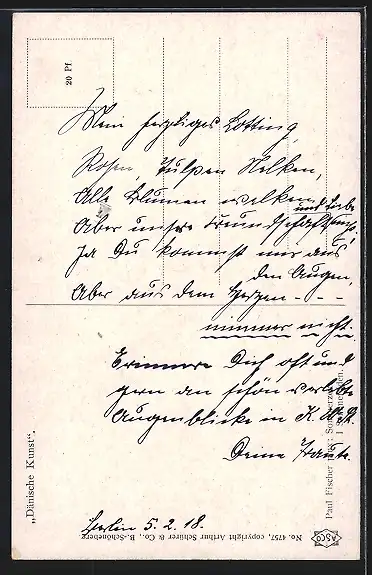 20 Pf.
Mein herziges Lotting,
Rosen, Tulpen Nelken,
Alle Blumen welken
Aber unsre Freundschaft und Liebe
Ja Du kommst mir aus
den Augen,
Aber aus dem Herzen - - -
nimmer nicht.
Erinnere Dich oft und
gern an schön verlebte
Augenblicke in K. W. St.
Deine Traute.
Berlin 5. 2. 18.
„Dänische Kunst".
No. 4757, copyright Arthur Schürer & Co., B.-Schöneberg
ASCO
Paul Fischer